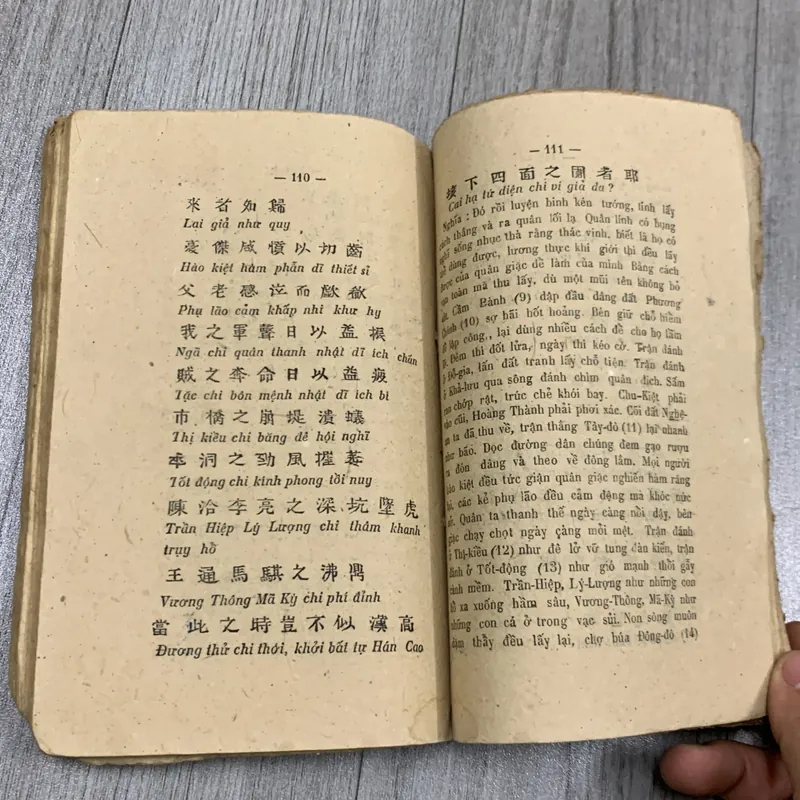 — 110 —
來者如歸
Lai giả như quy
豪傑咸憤以切齒
Hào kiệt hàm phẫn dĩ thiết sỉ
父老感泣而歔欷
Phụ lão cảm khấp nhi khư hy
我之軍聲日以益振
Ngã chi quân thanh nhật dĩ ích chấn
賊之奔命日以益疲
Tặc chi bôn mệnh nhật dĩ ích bì
市橋之崩堤潰蟻
Thị kiều chi băng đê hội nghĩ
本洞之勁風摧萎
Tốt động chi kính phong tồi nuy
陳洽李亮之深坑墜虎
Trần Hiệp Lý Lượng chi thâm khanh
trụy hồ
王通馬騏之沸鼎
Vương Thông Mã Kỳ chi phí đỉnh
當此之時豈不似漢高
Đương thử chi thời, khởi bất tự Hán Cao
— 111 —
垓下四面之圍者耶
Cai hạ tứ diện chi vi giả da ?
Nghĩa : Đó rồi luyện binh kén tướng, tính lấy
cách thắng và ra quân lối lạ. Quân lính có bụng
nghĩ sống nhục thà rằng thác vinh, biết là họ có
dùng được, lương thực khí giới thì đều lấy
được của quân giặc để làm của mình Bằng cách
toàn mà thu lấy, dù một mũi tên không bỏ
Cầm Bành (9) dập đầu dâng đất Phương
Chính (10) sợ hãi hốt hoảng. Bên giữ chỗ hiểm
lập công, lại dùng nhiều cách để cho họ lầm
Đêm thì đốt lửa, ngày thì kéo cờ. Trận đánh
ở Đỗ-gia, lấn đất tranh lấy chỗ tiện. Trận đánh
ở Khả-lưu qua sông đánh chìm quân địch. Sấm
ran chớp rật, trúc chẻ khói bay. Chu-Kiệt phải
vào cũi, Hoàng Thành phải phơi xác. Cõi đất Nghệ-
an ta đã thu về, trận thắng Tây-đô (11) lại nhanh
như bão. Dọc đường dân chúng đem gạo rượu
ra đón dâng và theo về đông lắm. Mọi người
hào kiệt đều tức giận quân giặc nghiến hàm răng
các kẻ phụ lão đều cảm động mà khóc nức
nở. Quân ta thanh thế ngày càng nổi dậy, bên
giặc chạy chọt ngày càng mỏi mệt. Trận đánh
ở Thị-kiều (12) như đê lở vỡ tung đàn kiến, trận
đánh ở Tốt-động (13) như gió mạnh thổi gẫy
cành mềm. Trần-Hiệp, Lý-Lượng như những con
hổ xa xuống hầm sâu, Vương-Thông, Mã-Kỳ như
những con cá ở trong vạc sủi. Non sông muôn
dặm thẩy đều lấy lại, chợ búa Đông-đô (14)